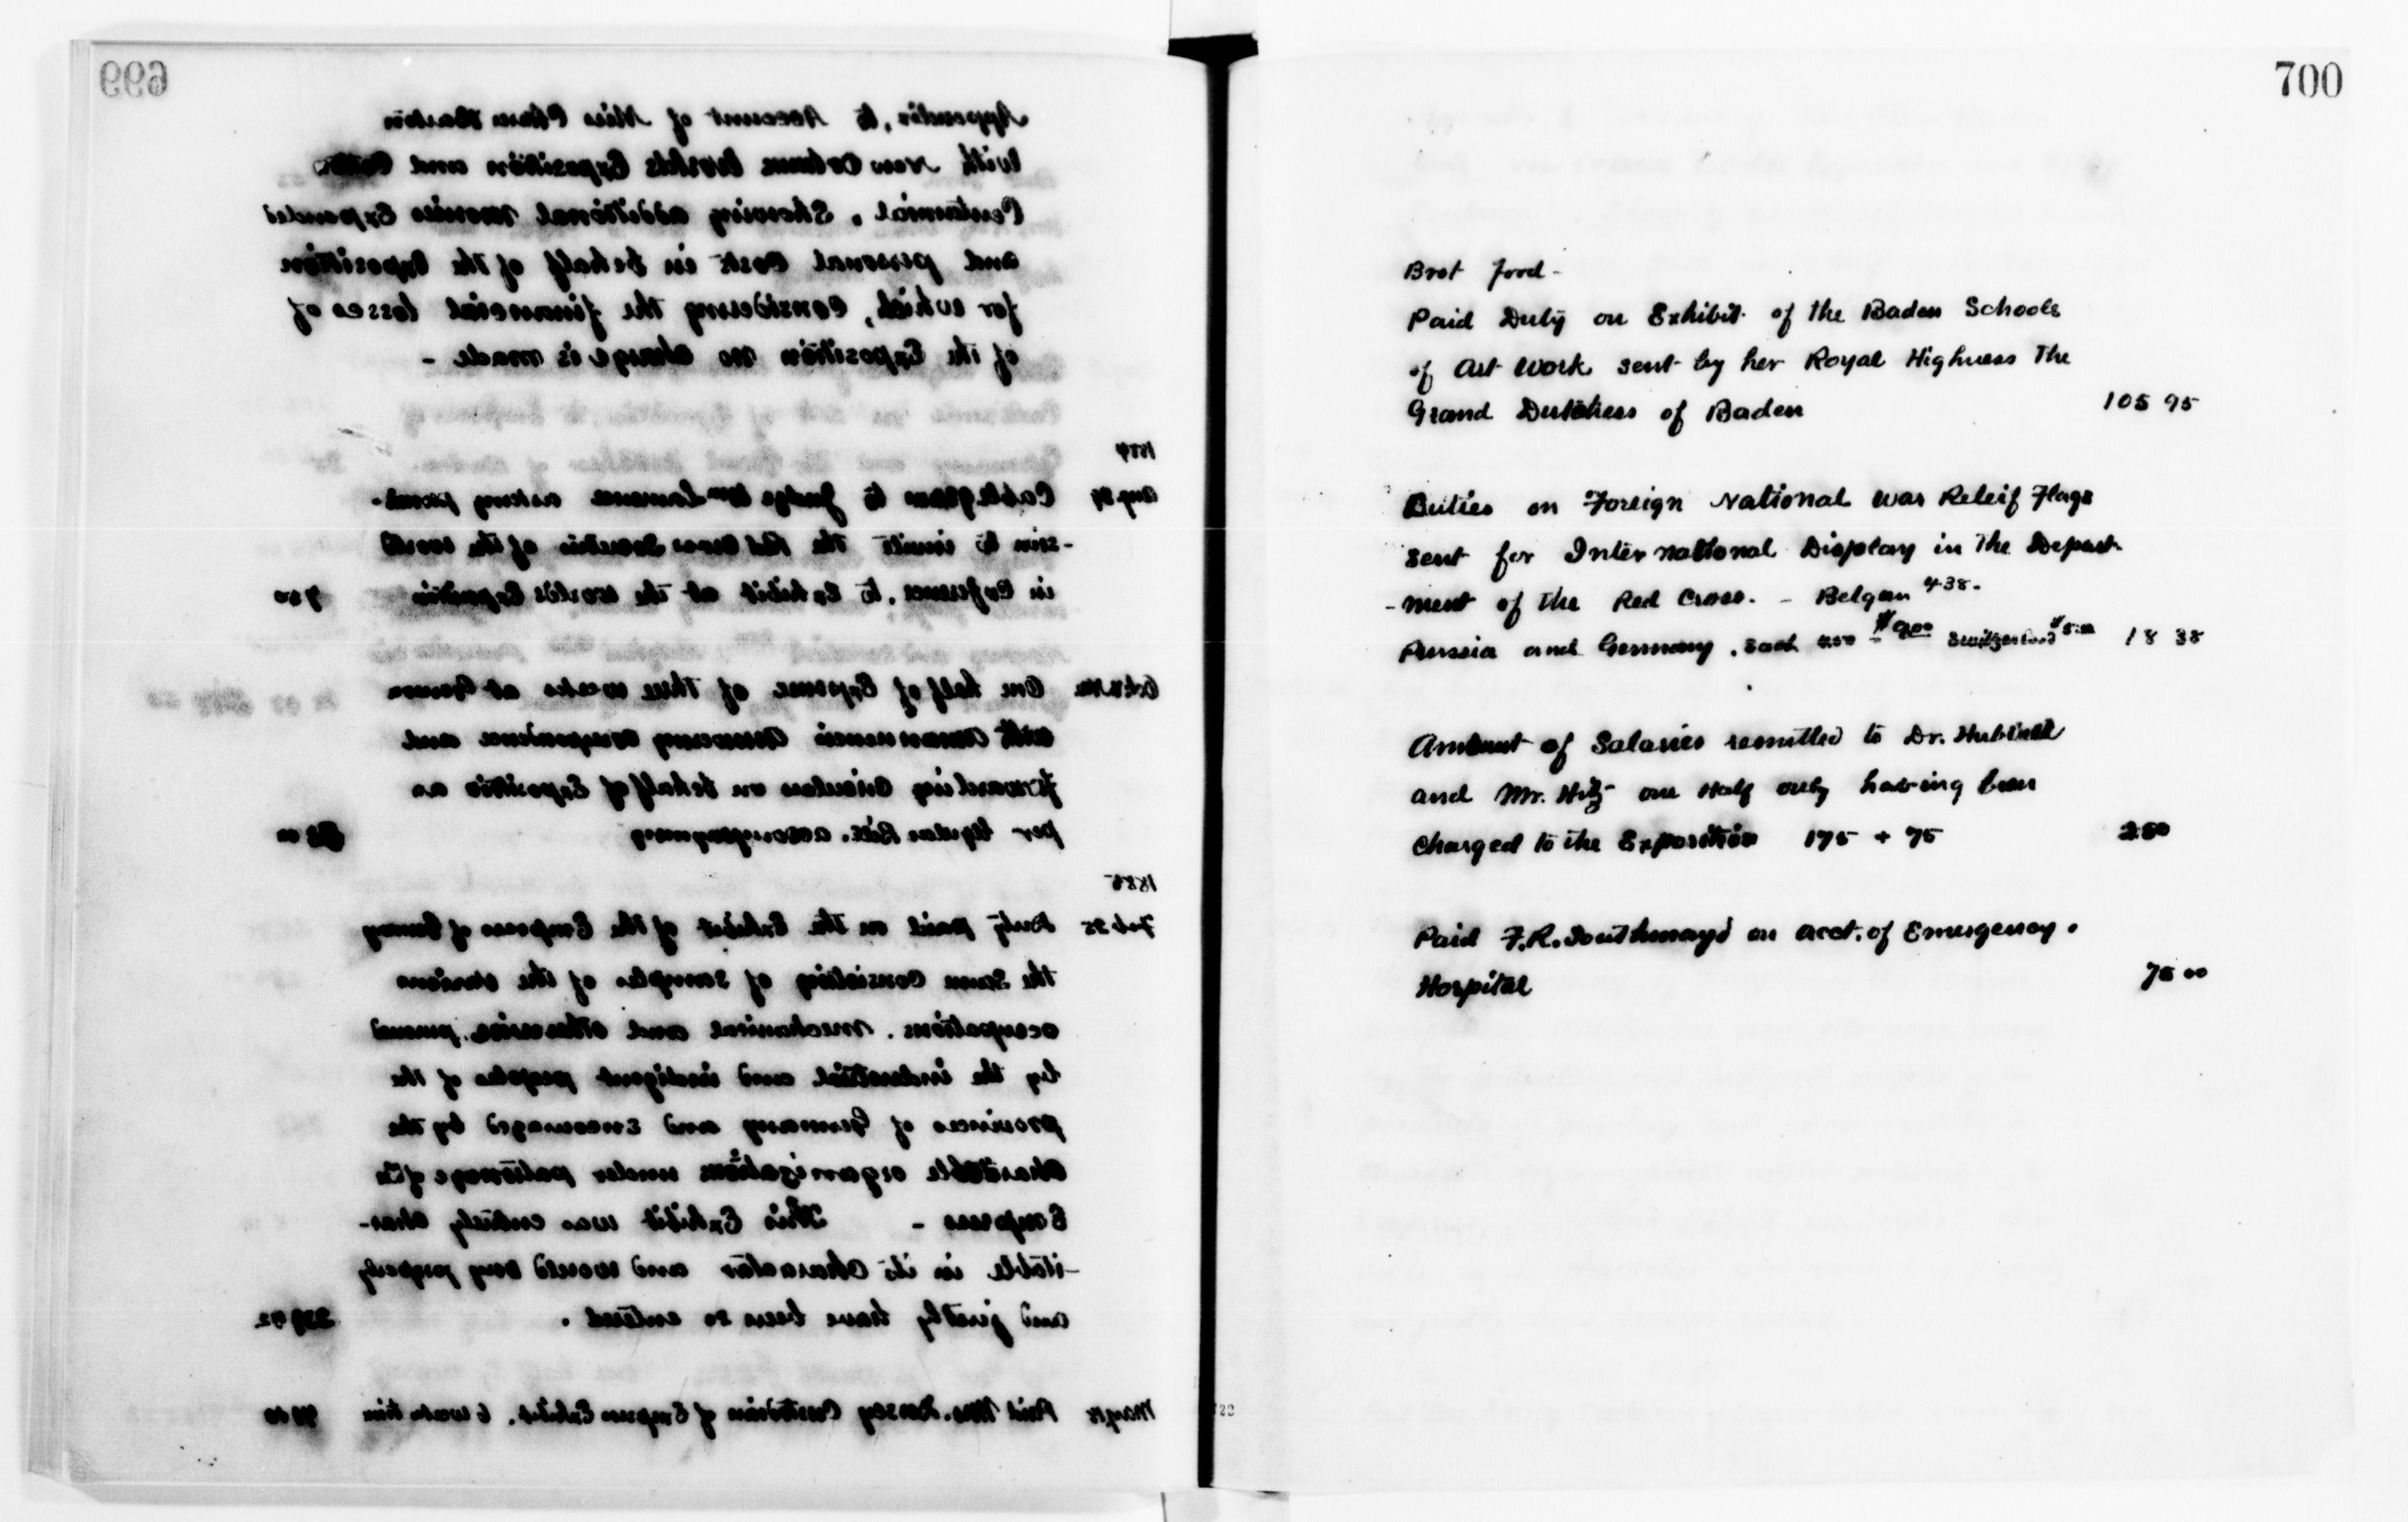 699
Appendix, to Account of Miss Clara Barton
With New Orleans Worlds Exposition and Cotton
Centannial, Showing additional monies Expended
and personal Cost in behalf of the Exposition
for which, Considering the financial losses of
of the Exposition no charge is made -
1884
Aug 24 Cablegram to Judge Wm Lawrence asking permis-
-sion to invite the Red Cross Societies of the World
in Conference, to Exhibit at the Worlds Exposition 7 50
One half of Expense of Three weeks at Geneva
with answering correspondence and
forwarding circulars on behalf of Exposition as
per Bill accompanying
1885
Feb 25 Duty paid on the Exhibit of the Empress of Germany
the Same Consisting of Samples of the various
occupations. Mechanical and otherwise. pursued
by the industrial and indigent peoples of the
provinces of Germany and Encouraged by the
charitable organizations under patronage of the
Empress - This Exhibit was entirely char-
-itable in its Character and would very properly
and justly have been so entered.
May 15 Paid Mrs. Custodian of Empress Exhibit. 6 weeks time
700
Brot ford -
Paid Duty on Exhibit of the Baden Schools
of Art Work sent by her Royal Highness The
Grand Dutchess of Baden 105 95
Duties on Foreign National War Releif Flags
Sent for International Display in The Depart-
-ment of The Red Cross. - Belgan 4.38-
Russia and Germany, Each 4.50 - $9.00 Switzerland $5.00 18 38
Amount of Salaries remitted to Dr. Hubbell
and Mr. Hitz one Half only having been
Charged to the Exposition 175 + 75 250
Paid F.R. Southmayd on acct. of Emergency.
Hospital 75 00